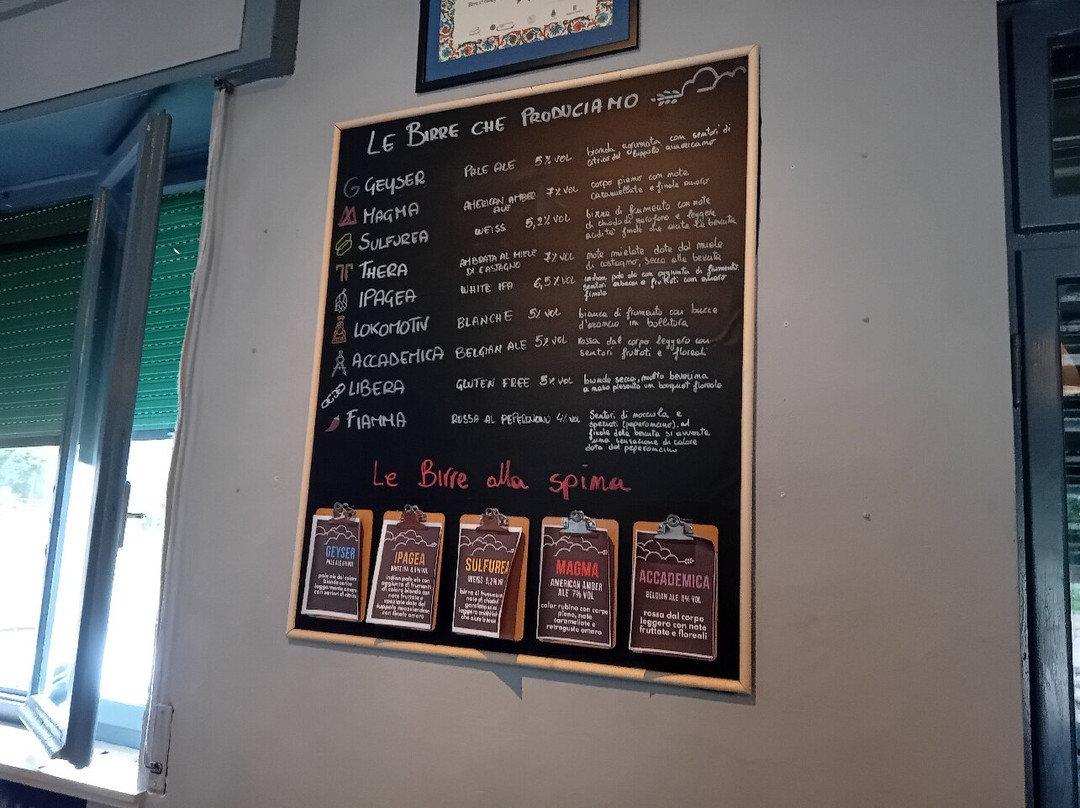 LE BIRRE CHE PRODUCIAMO
GEYSER PALE ALE 5% VOL bionda agrumata con sentori di
citrico del luppolo americano
MAGMA AMERICAN AMBER ALE 7% VOL corpo pieno con note
caramellate e finale amaro
SULFUREA WEISS 5,2% VOL birra di frumento con note
di chiodi di garofano e leggera
acidità finale che aiuta la bevuta
THERA AMBRATA AL MIELE DI CASTAGNO 7% VOL note mielate date dal miele
di castagno, secca alla bevuta
IPAGEA WHITE IPA 6,5% VOL indian pale ale con aggiunta di frumento
sentori erbacei e fruttati con amaro
finale
LOKOMOTIV BLANCHE 5% VOL bianca di frumento con bucce
d'arancio in bollitura
ACCADEMICA BELGIAN ALE 5% VOL Rossa dal corpo leggero con
sentori fruttati e floreali
LIBERA GLUTEN FREE 5% VOL bionda secca, molto beverina
a naso presenta un bouquet floreale
FIAMMA ROSSA AL PEPERONCINO 4% VOL Sentori di nocciola e
speziati (peperoncino), al
finale della bevuta si avverte
una sensazione di calore
data dal peperoncino
Le Birre alla spina
GEYSER
PALE ALE 5% VOL
pale ale dal colore
con sentori di citrico
IPAGEA
WHITE IPA 6.5% VOL
indian pale ale con
aggiunta di frumento
di colore biondo con
note fruttate e
speziate date dal
luppolo neozelandese
con finale amaro
SULFUREA
WEISS 5,2% VOL
birra di frumento
note di chiodi
garofano e
leggera
che aiuta la
MAGMA
AMERICAN AMBER
ALE 7% VOL
color rubino con corpo
pieno, note
caramellate e
retrogusto amaro
ACCADEMICA
BELGIAN ALE 5% VOL
rossa dal corpo
leggero con note
fruttate e floreali